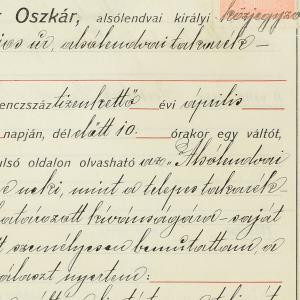 r Oszkár, alsólendvai királyi közjegyző
úr, alsólendvai takarék-
enczszáz tizenkettő évi április
napján, délelőtt 10. órakor egy váltót,
ulsó oldalon olvasható az „Alsólendvai
neki, mint a telepes takarék-
határozott kívánságára saját
személyesen bemutattam, a
álaszt nyertem: